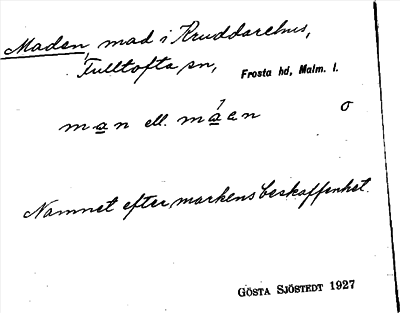 Maden, mad i Kruddarehus,
Fulltofta sn, Frosta hd, Malm. l.
man ell. måen o
Namnet efter markens beskaffenhet.
GÖSTA SJÖSTEDT 1927